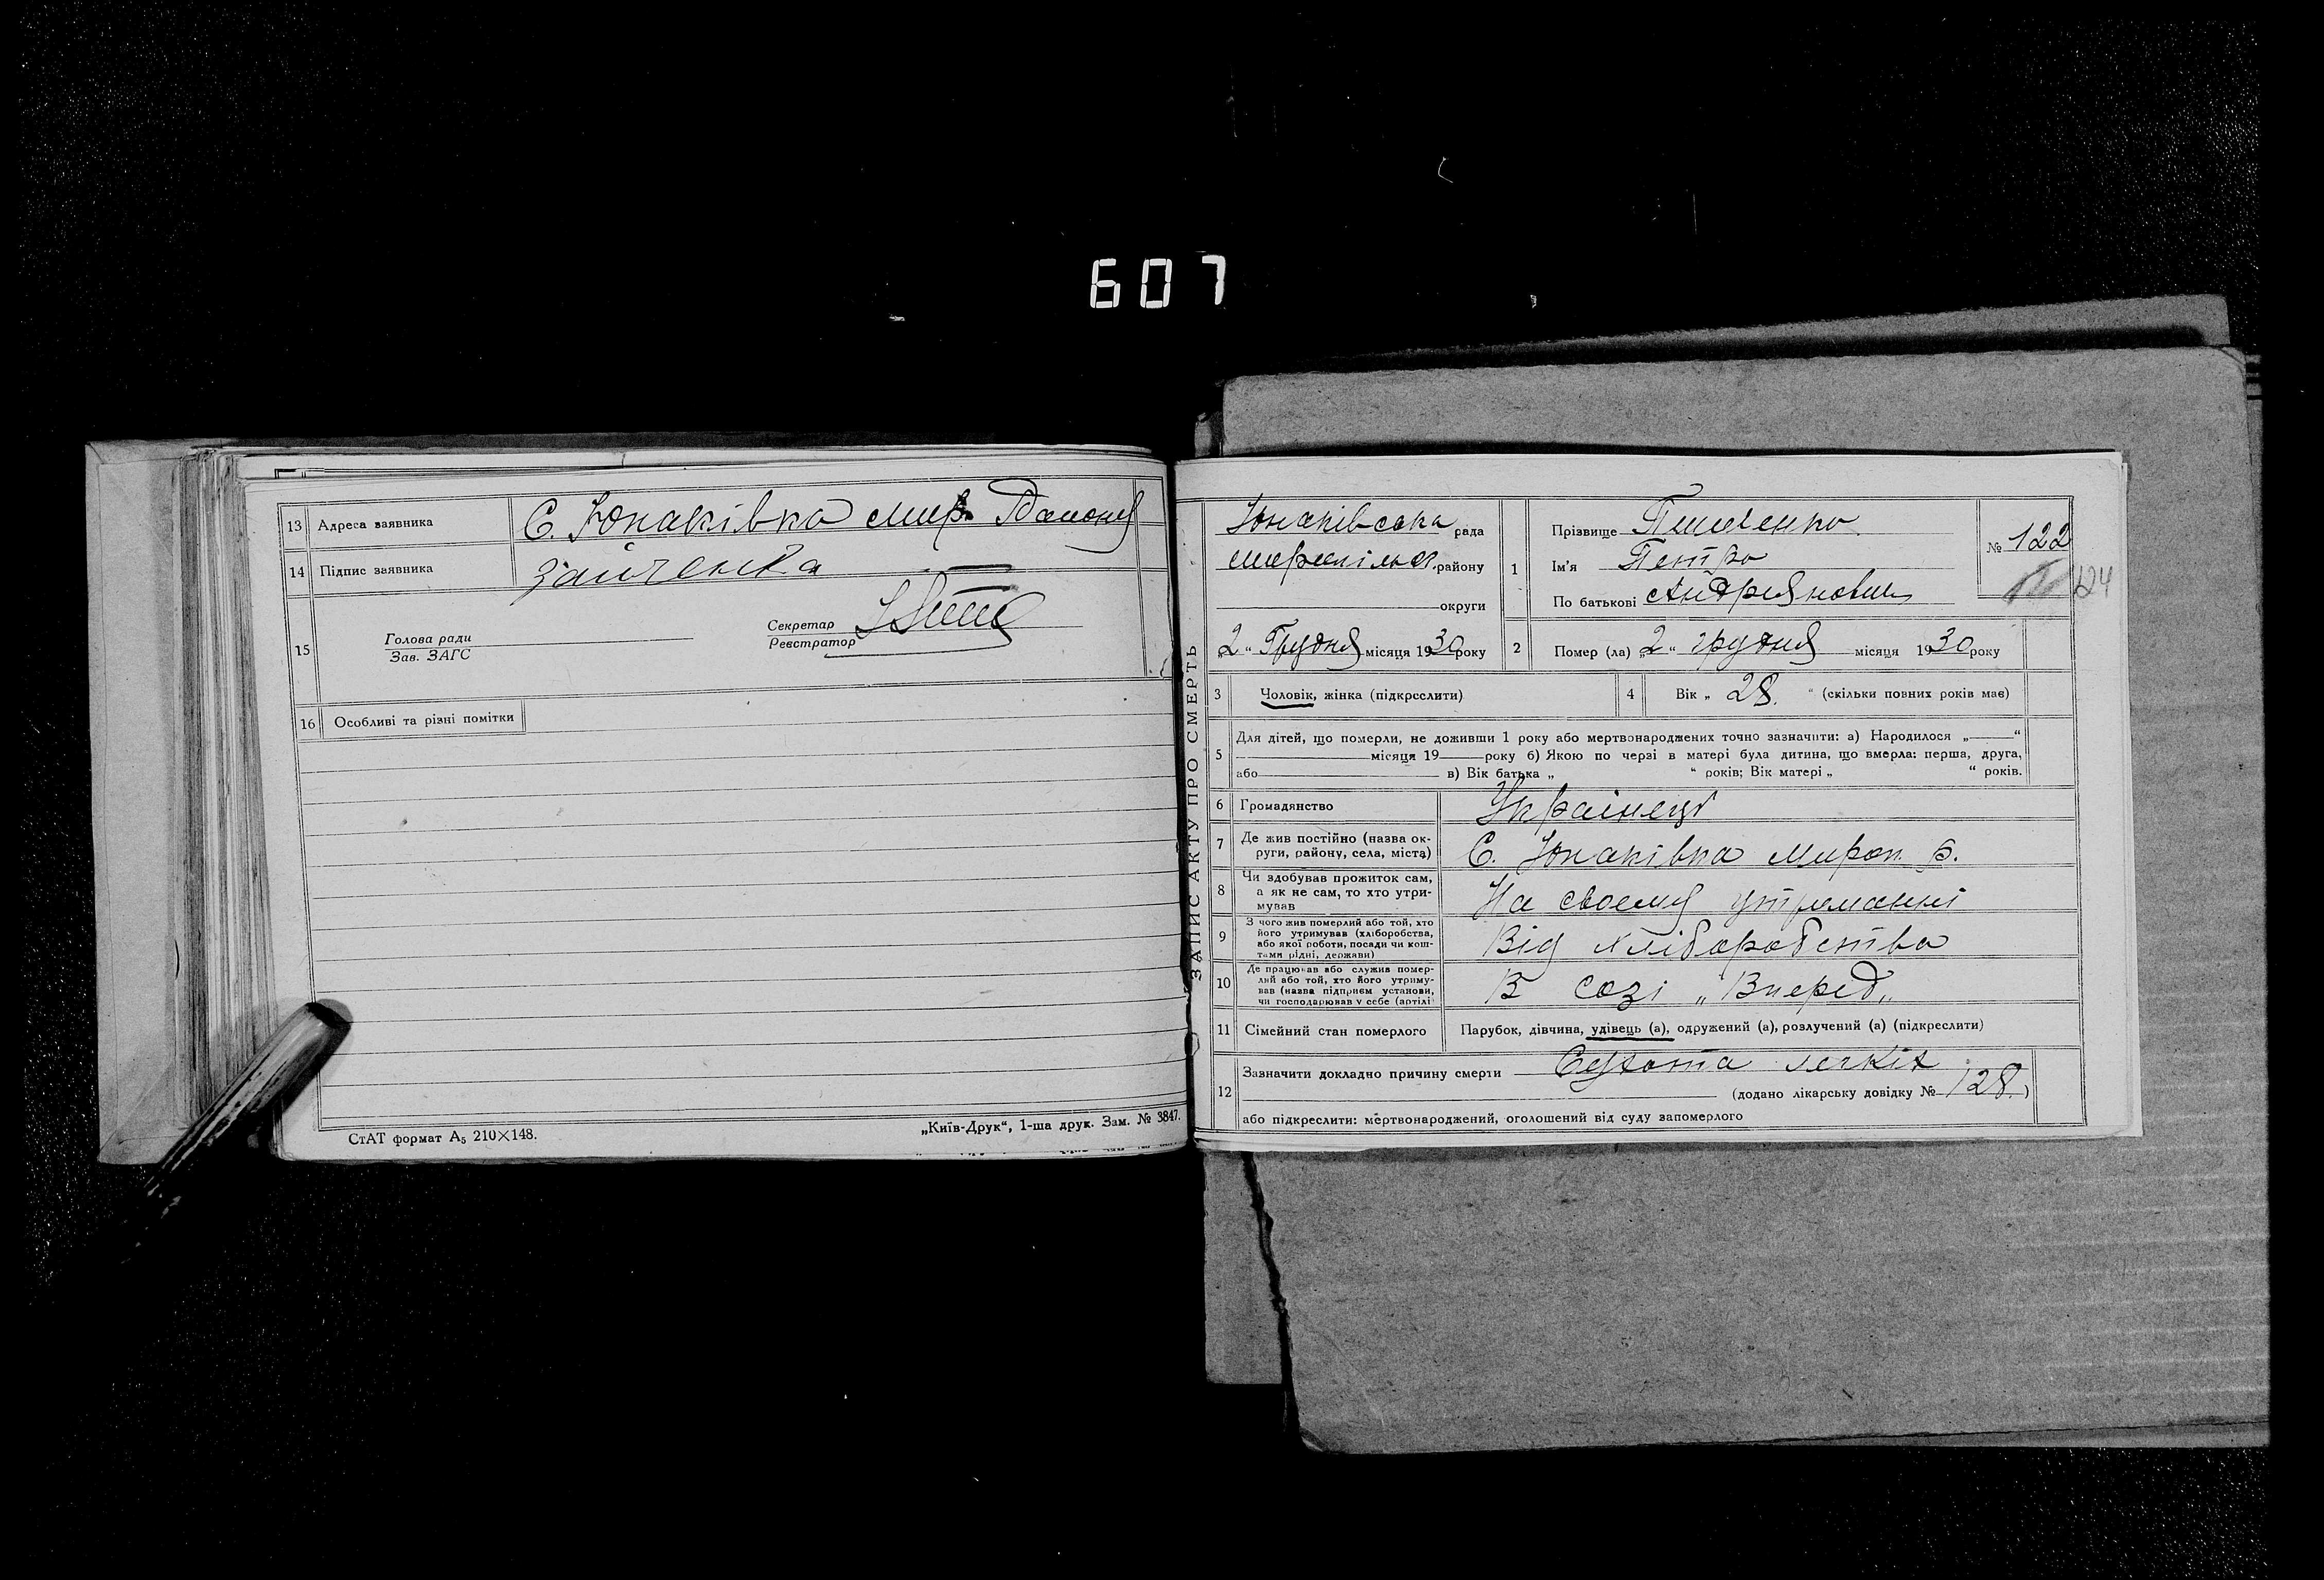 607
13 Адреса заявника С. Юнаківка мир. району
14 Підпис заявника Зайченка
15 Голова ради
Зав. ЗАГС
Секретар
Реєстратор
16 Особливі та різні помітки
СтАТ формат А₅ 210×148.
„Київ-Друк“, 1-ша друк. Зам. № 3847.
ЗАПИС АКТУ ПРО СМЕРТЬ
Юнаківська рада
району
округи
„2“ Грудня місяця 1930 року
1 Прізвище
Ім'я Петро
По батькові Андріянович
№ 122
124
2 Помер (ла) „2“ грудня місяця 1930 року
3 Чоловік, жінка (підкреслити)
4 Вік „ 28. “ (скільки повних років має)
5 Для дітей, що померли, не доживши 1 року або мертвонароджених точно зазначити: а) Народилося „ “
місяця 19 року б) Якою по черзі в матері була дитина, що вмерла: перша, друга,
або в) Вік батька „ “ років; Вік матері „ “ років.
6 Громадянство Українець
7 Де жив постійно (назва ок-
руги, району, села, міста) С. Юнаківка Мироп. р.
8 Чи здобував прожиток сам,
а як не сам, то хто утри-
мував На своему утриманні
9 З чого жив померлий або той, хто
його утримував (хліборобства,
або якої роботи, посади чи кош-
тами рідні, держави) Від хліборобства
10 Де працював або служив помер-
лий або той, хто його утриму-
вав (назва підприєм установи,
чи господарював у себе (артілі) В созі „Вперед„
11 Сімейний стан померлого Парубок, дівчина, удівець (а), одружений (а), розлучений (а) (підкреслити)
12 Зазначити докладно причину смерти Сухота легких
(додано лікарську довідку № 128.)
або підкреслити: мертвонароджений, оголошений від суду запомерлого